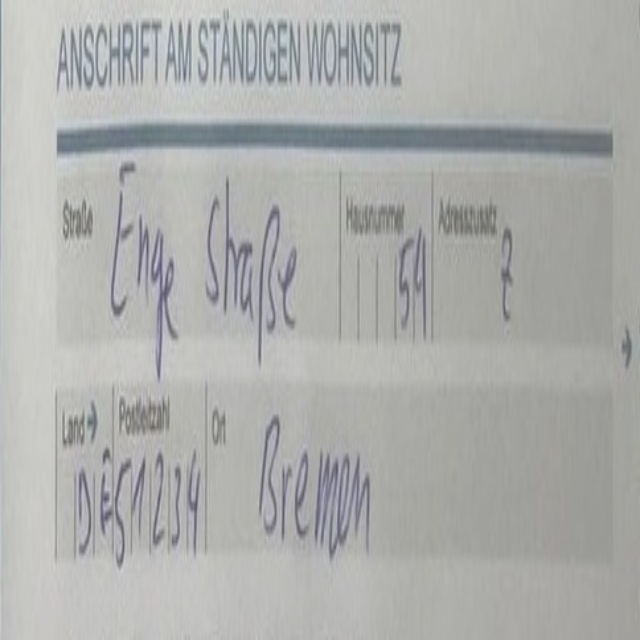 ANSCHRIFT AM STÄNDIGEN WOHNSITZ
Straße Enge Straße Hausnummer 59 Adresszusatz z
Land → Postleitzahl Ort
DE 51234 Bremen